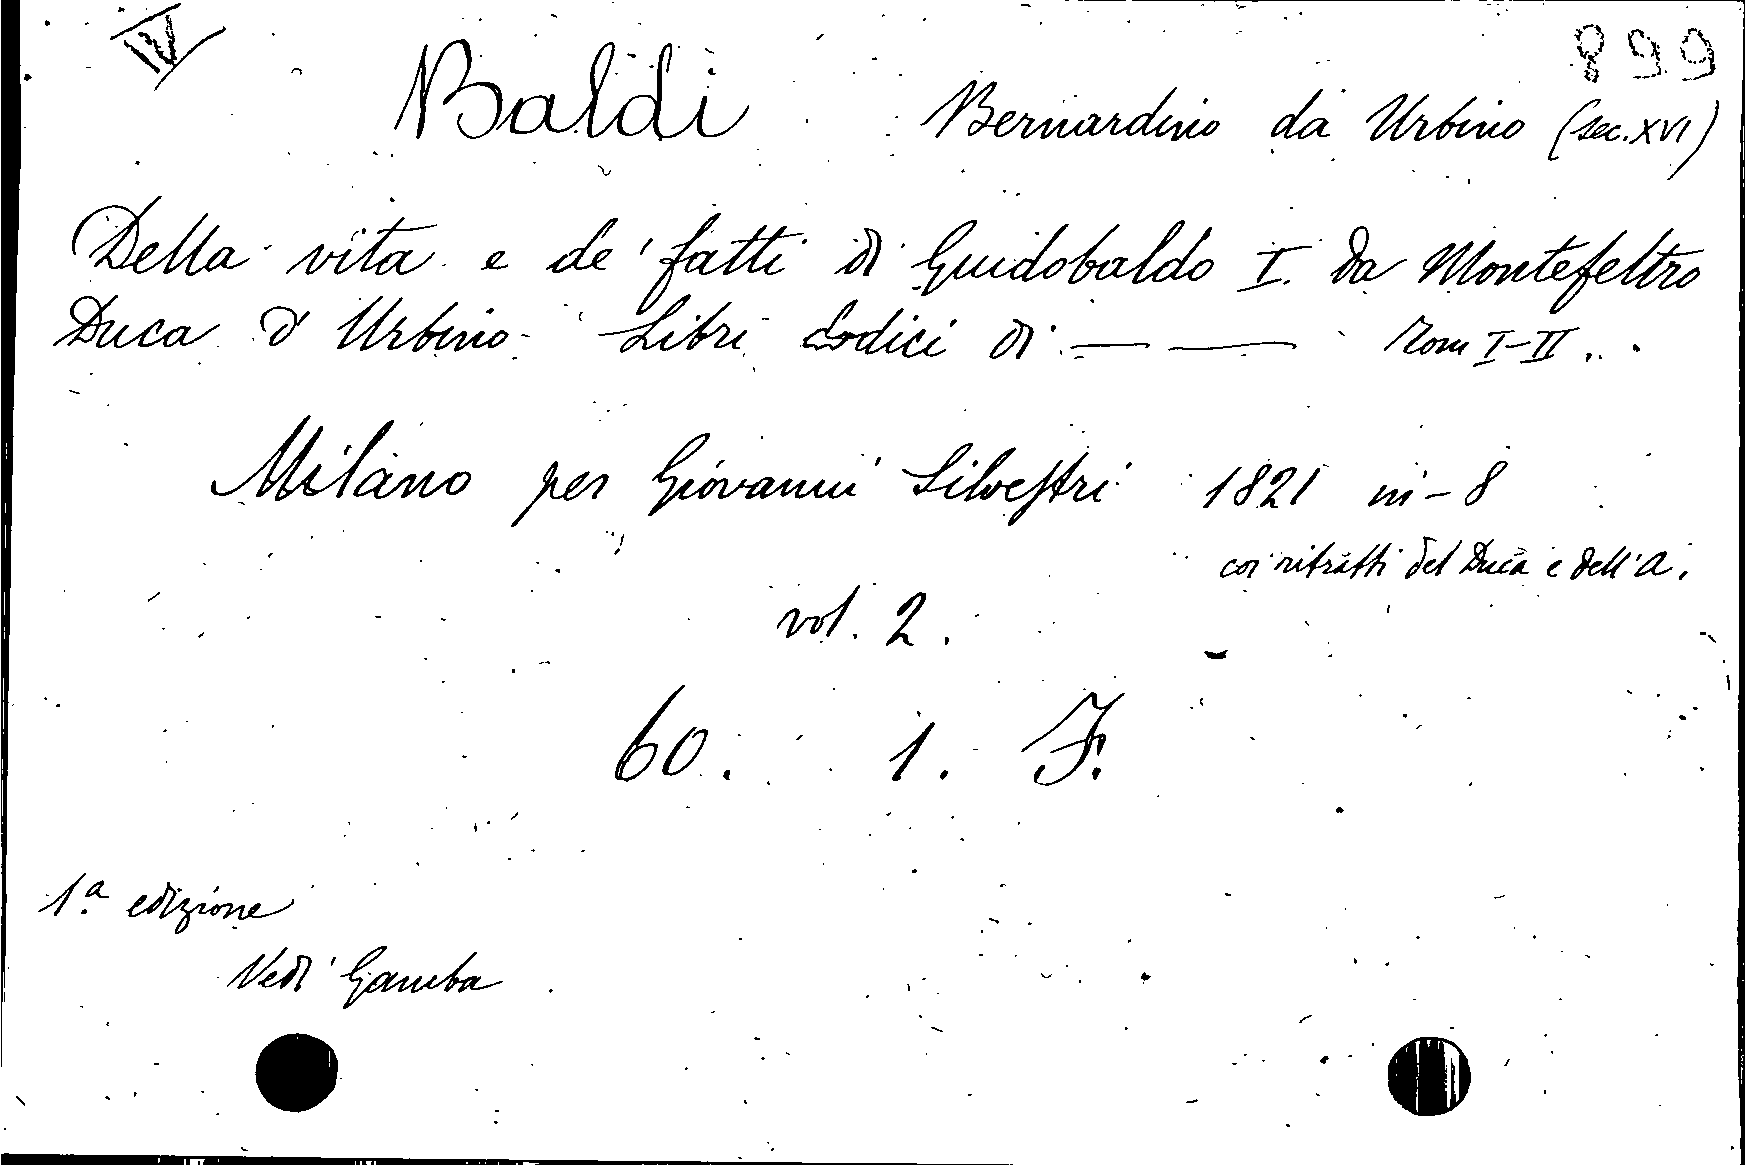 IV
899
Baldi Bernardino da Urbino (sec. XVI)
Della vita e de' fatti di Guidobaldo I. da Montefeltro
Duca d'Urbino Libri dodici di — — Tom I-II..
Milano per Giovanni Silvestri 1821 in-8
coi ritratti del Duca e dell'A.
vol. 2.
60. 1. F.
1.a edizione
Vedi Gamba